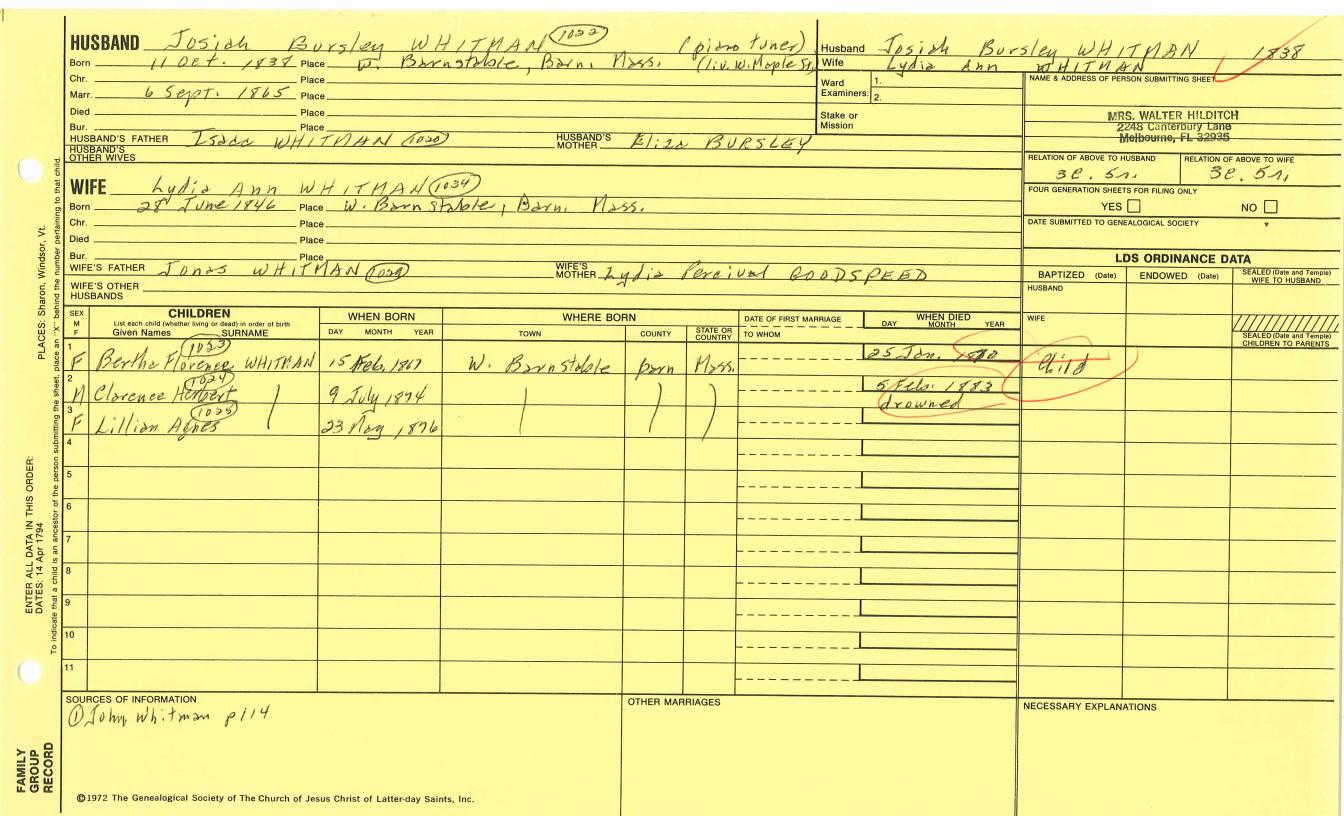 HUSBAND Josiah Bursley WHITMAN 1022 (piano tuner)
Born 11 Oct. 1838 Place W. Barnstable, Barn. Mass. (liv. W. Maple St.)
Chr. Place
Marr. 6 Sept. 1865 Place
Died Place
Bur. Place
HUSBAND'S FATHER Isaac WHITMAN 1020 HUSBAND'S MOTHER Eliza BURSLEY
HUSBAND'S OTHER WIVES
Husband Josiah Bursley WHITMAN 1838
Wife Lydia Ann WHITMAN
Ward Examiners: 1.
2.
Stake or Mission
NAME & ADDRESS OF PERSON SUBMITTING SHEET
MRS. WALTER HILDITCH
2248 Canterbury Lane
Melbourne, FL 32935
RELATION OF ABOVE TO HUSBAND RELATION OF ABOVE TO WIFE
3c. 5r. 3c. 5r.
FOUR GENERATION SHEETS FOR FILING ONLY
YES NO
DATE SUBMITTED TO GENEALOGICAL SOCIETY
WIFE Lydia Ann WHITMAN 1034
Born 28 June 1846 Place W. Barnstable, Barn. Mass.
Chr. Place
Died Place
Bur. Place
WIFE'S FATHER Jonas WHITMAN WIFE'S MOTHER Lydia Percival GOODSPEED
WIFE'S OTHER HUSBANDS
LDS ORDINANCE DATA
BAPTIZED (Date) ENDOWED (Date) SEALED (Date and Temple) WIFE TO HUSBAND
HUSBAND
WIFE
SEALED (Date and Temple) CHILDREN TO PARENTS
SEX M F CHILDREN WHEN BORN WHERE BORN DATE OF FIRST MARRIAGE WHEN DIED
List each child (whether living or dead) in order of birth
Given Names SURNAME DAY MONTH YEAR TOWN COUNTY STATE OR COUNTRY TO WHOM DAY MONTH YEAR
1 F Bertha Florence WHITMAN 1023 15 Feb. 1867 W. Barnstable barn Mass. 25 Jan. Child
2 M Clarence Herbert 1024 9 July 1874 5 Feb. 1883
drowned
3 F Lillian Agnes 1025 23 May 1876
4
5
6
7
8
9
10
11
SOURCES OF INFORMATION
① John Whitman p114
OTHER MARRIAGES
NECESSARY EXPLANATIONS
©1972 The Genealogical Society of The Church of Jesus Christ of Latter-day Saints, Inc.
FAMILY GROUP RECORD
ENTER ALL DATA IN THIS ORDER:
DATES: 14 Apr 1794
PLACES: Sharon, Windsor, Vt.
To indicate that a child is an ancestor of the person submitting the sheet, place an "X" behind the number pertaining to that child.